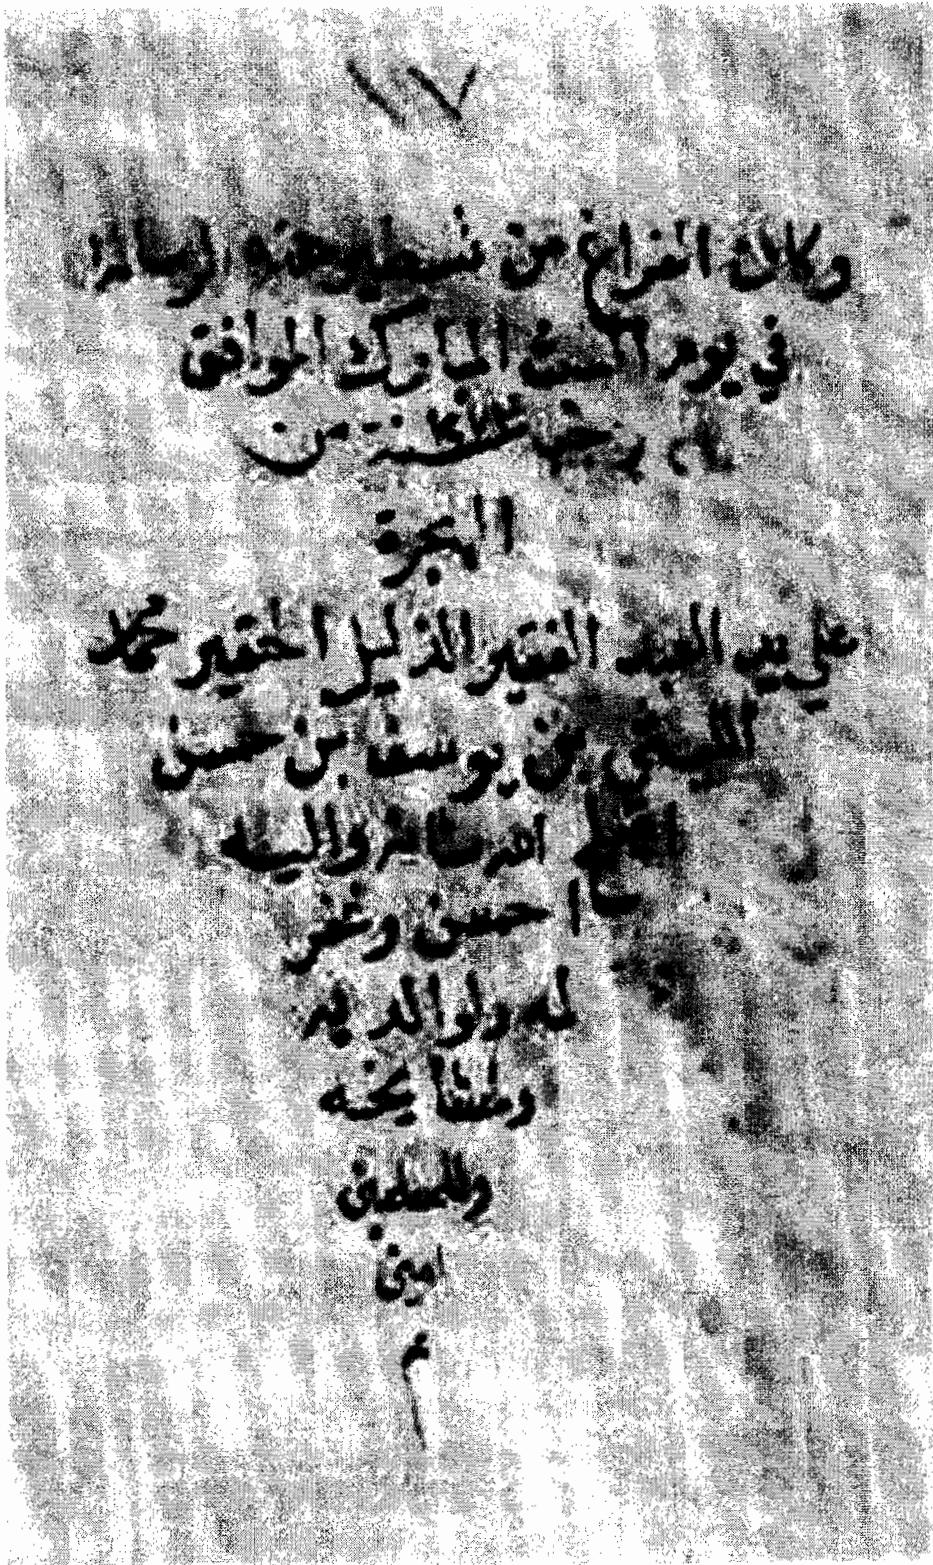 ١٧
وكان الفراغ من تسطير هذه الرسالة
في يوم السبت المبارك الموافق
رجب سنة من
الهجرة
على يد العبد الفقير الذليل الحقير محمد
الليثي بن يوسف بن حسن
الله واليه
احسن وغفر
له ولوالديه
ولمشايخه
وللمسلمين
امين
م